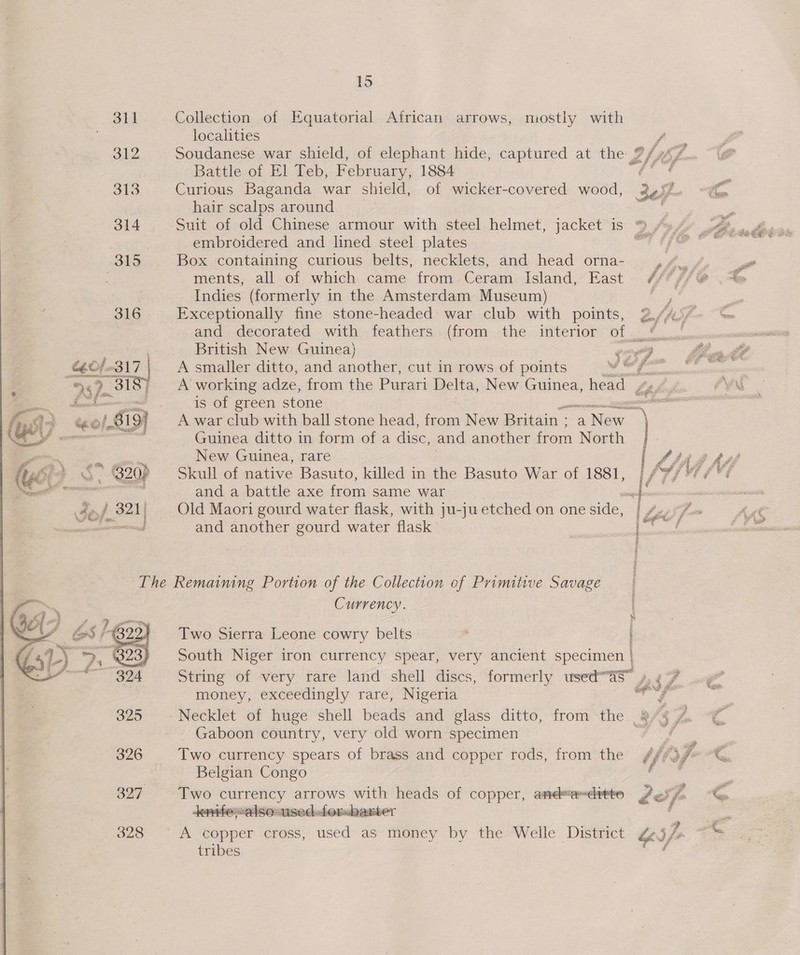 15
311 Collection of Equatorial African arrows, mostly with
localities
312 Soudanese war shield, of elephant hide, captured at the
Battle of El Teb, February, 1884
313 Curious Baganda war shield, of wicker-covered wood,
hair scalps around
314 Suit of old Chinese armour with steel helmet, jacket is
embroidered and lined steel plates
315 Box containing curious belts, necklets, and head orna-
ments, all of which came from Ceram Island, East
Indies (formerly in the Amsterdam Museum)
316 Exceptionally fine stone-headed war club with points,
and decorated with feathers (from the interior of
British New Guinea)
317 A smaller ditto, and another, cut in rows of points
318 A working adze, from the Purari Delta, New Guinea, head
is of green stone
319 A war club with ball stone head, from New Britain ; a New
Guinea ditto in form of a disc, and another from North
New Guinea, rare
320 Skull of native Basuto, killed in the Basuto War of 1881,
and a battle axe from same war
321 Old Maori gourd water flask, with ju-ju etched on one side,
and another gourd water flask
The Remaining Portion of the Collection of Primitive Savage
Currency.
322 Two Sierra Leone cowry belts
323 South Niger iron currency spear, very ancient specimen
324 String of very rare land shell discs, formerly used as
money, exceedingly rare, Nigeria
325 Necklet of huge shell beads and glass ditto, from the
Gaboon country, very old worn specimen
326 Two currency spears of brass and copper rods, from the
Belgian Congo
327 Two currency arrows with heads of copper, and a ditto
knife, also used for barter
328 A copper cross, used as money by the Welle District
tribes